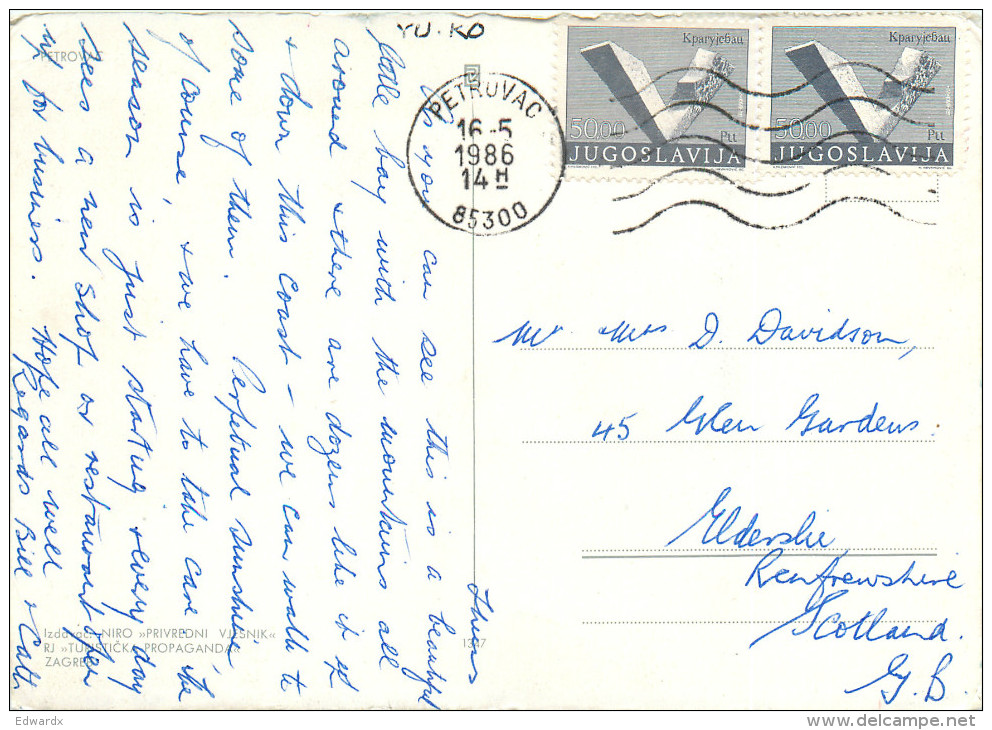 YU.KO
PETROVAC
Thurs
As you can see this is a beautiful
little bay with the mountains all
around & there are dozens like it up
& down this coast - we can walk to
some of them. Perpetual sunshine
of course, & we have to take care. The
season is just starting & every day
sees a new shop or restaurant open
up for business. Hope all well
Regards Bill &
PETROVAC
16-5
1986
14 H
85300
Крагујевац
5000
Ptt
JUGOSLAVIJA
Крагујевац
5000
Ptt
JUGOSLAVIJA
Mr Mrs D. Davidson,
45 Glen Gardens.
Elderslie
Renfrewshire
Scotland.
G.B.
Izdavač: NIRO »PRIVREDNI VJESNIK«
RJ »TURISTIČKA PROPAGANDA«
ZAGREB
1347
Edwardx
delcampe.net